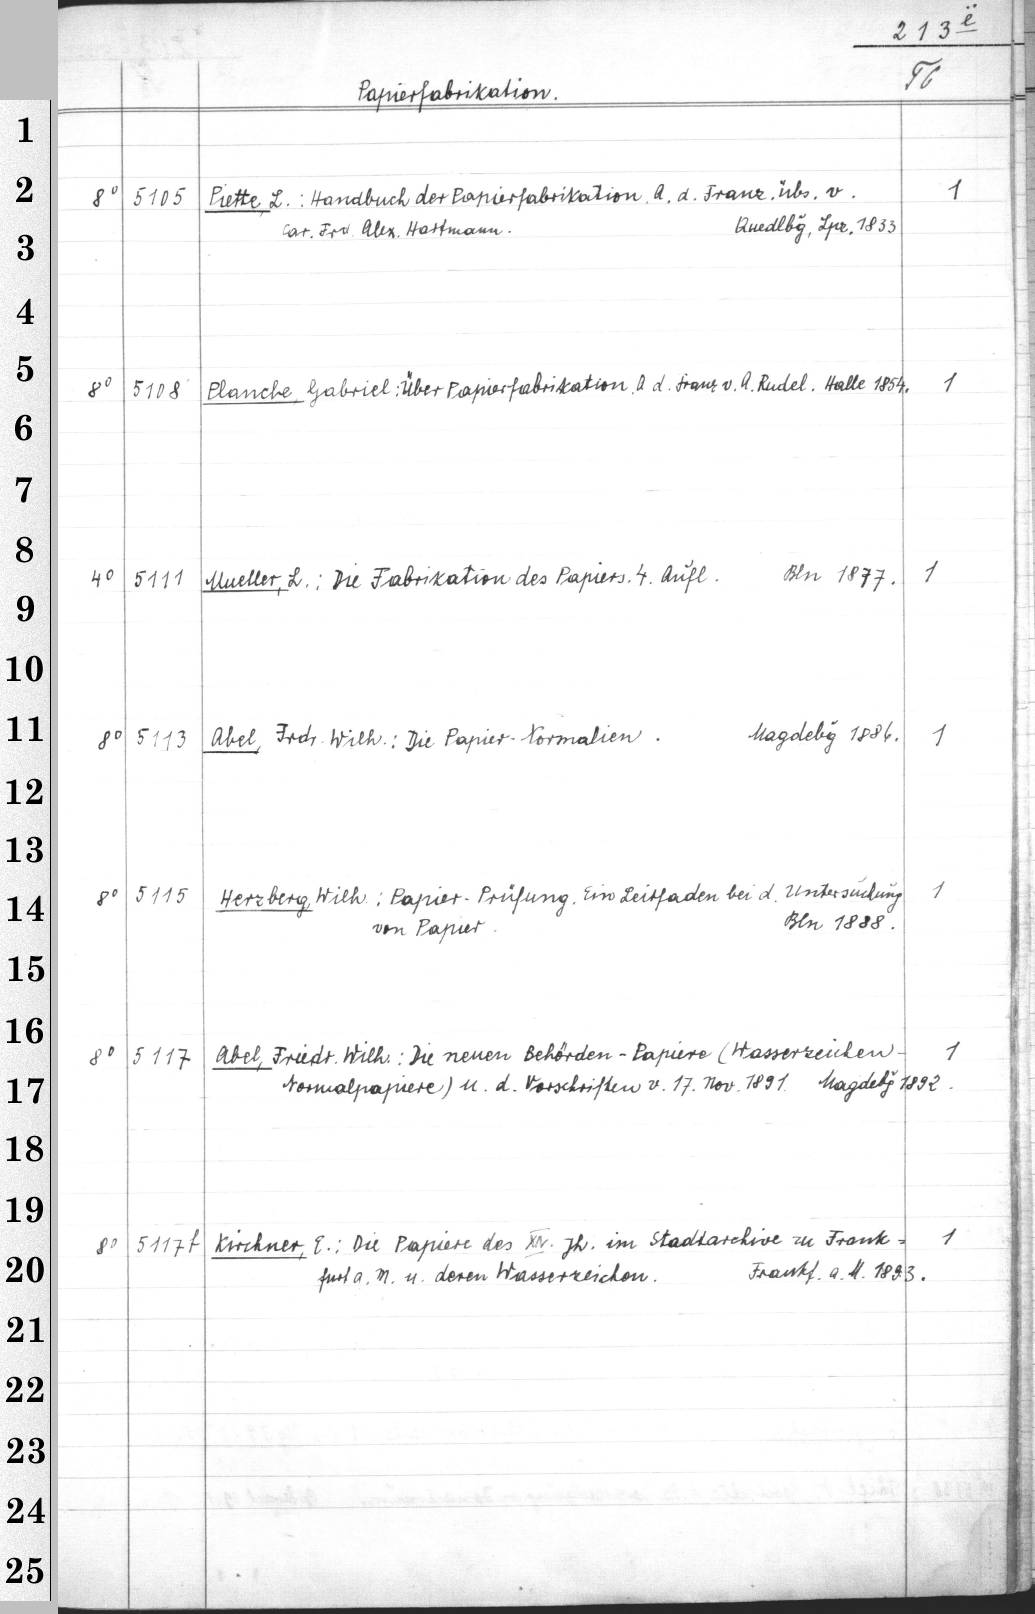 213 ë
T6
Papierfabrikation.
1
2
8° 5105 Piette, L.: Handbuch der Papierfabrikation. A. d. Franz. übs. v. 1
Car. Frd. Alex. Hartmann. Quedlbg, Lpz. 1833
3
4
5
8° 5108 Planche, Gabriel: Über Papierfabrikation. A d. Franz v. A. Rudel. Halle 1854. 1
6
7
8
4° 5111 Mueller, L.: Die Fabrikation des Papiers. 4. Aufl. Bln 1877. 1
9
10
11
8° 5113 Abel, Frdr. Wilh.: Die Papier-Normalien. Magdebg 1886. 1
12
13
14
8° 5115 Herzberg, Wilh.: Papier-Prüfung. Ein Leitfaden bei d. Untersuchung 1
von Papier. Bln 1888.
15
16
8° 5117 Abel, Friedr. Wilh.: Die neuen Behörden-Papiere (Wasserzeichen- 1
17
Normalpapiere) u. d. Vorschriften v. 17. Nov. 1891. Magdebg 1892.
18
19
8° 5117f Kirchner, E.: Die Papiere des XIV. Jh. im Stadtarchive zu Frank= 1
20
furt a. M. u. deren Wasserzeichen. Frankf. a. M. 1893.
21
22
23
24
25